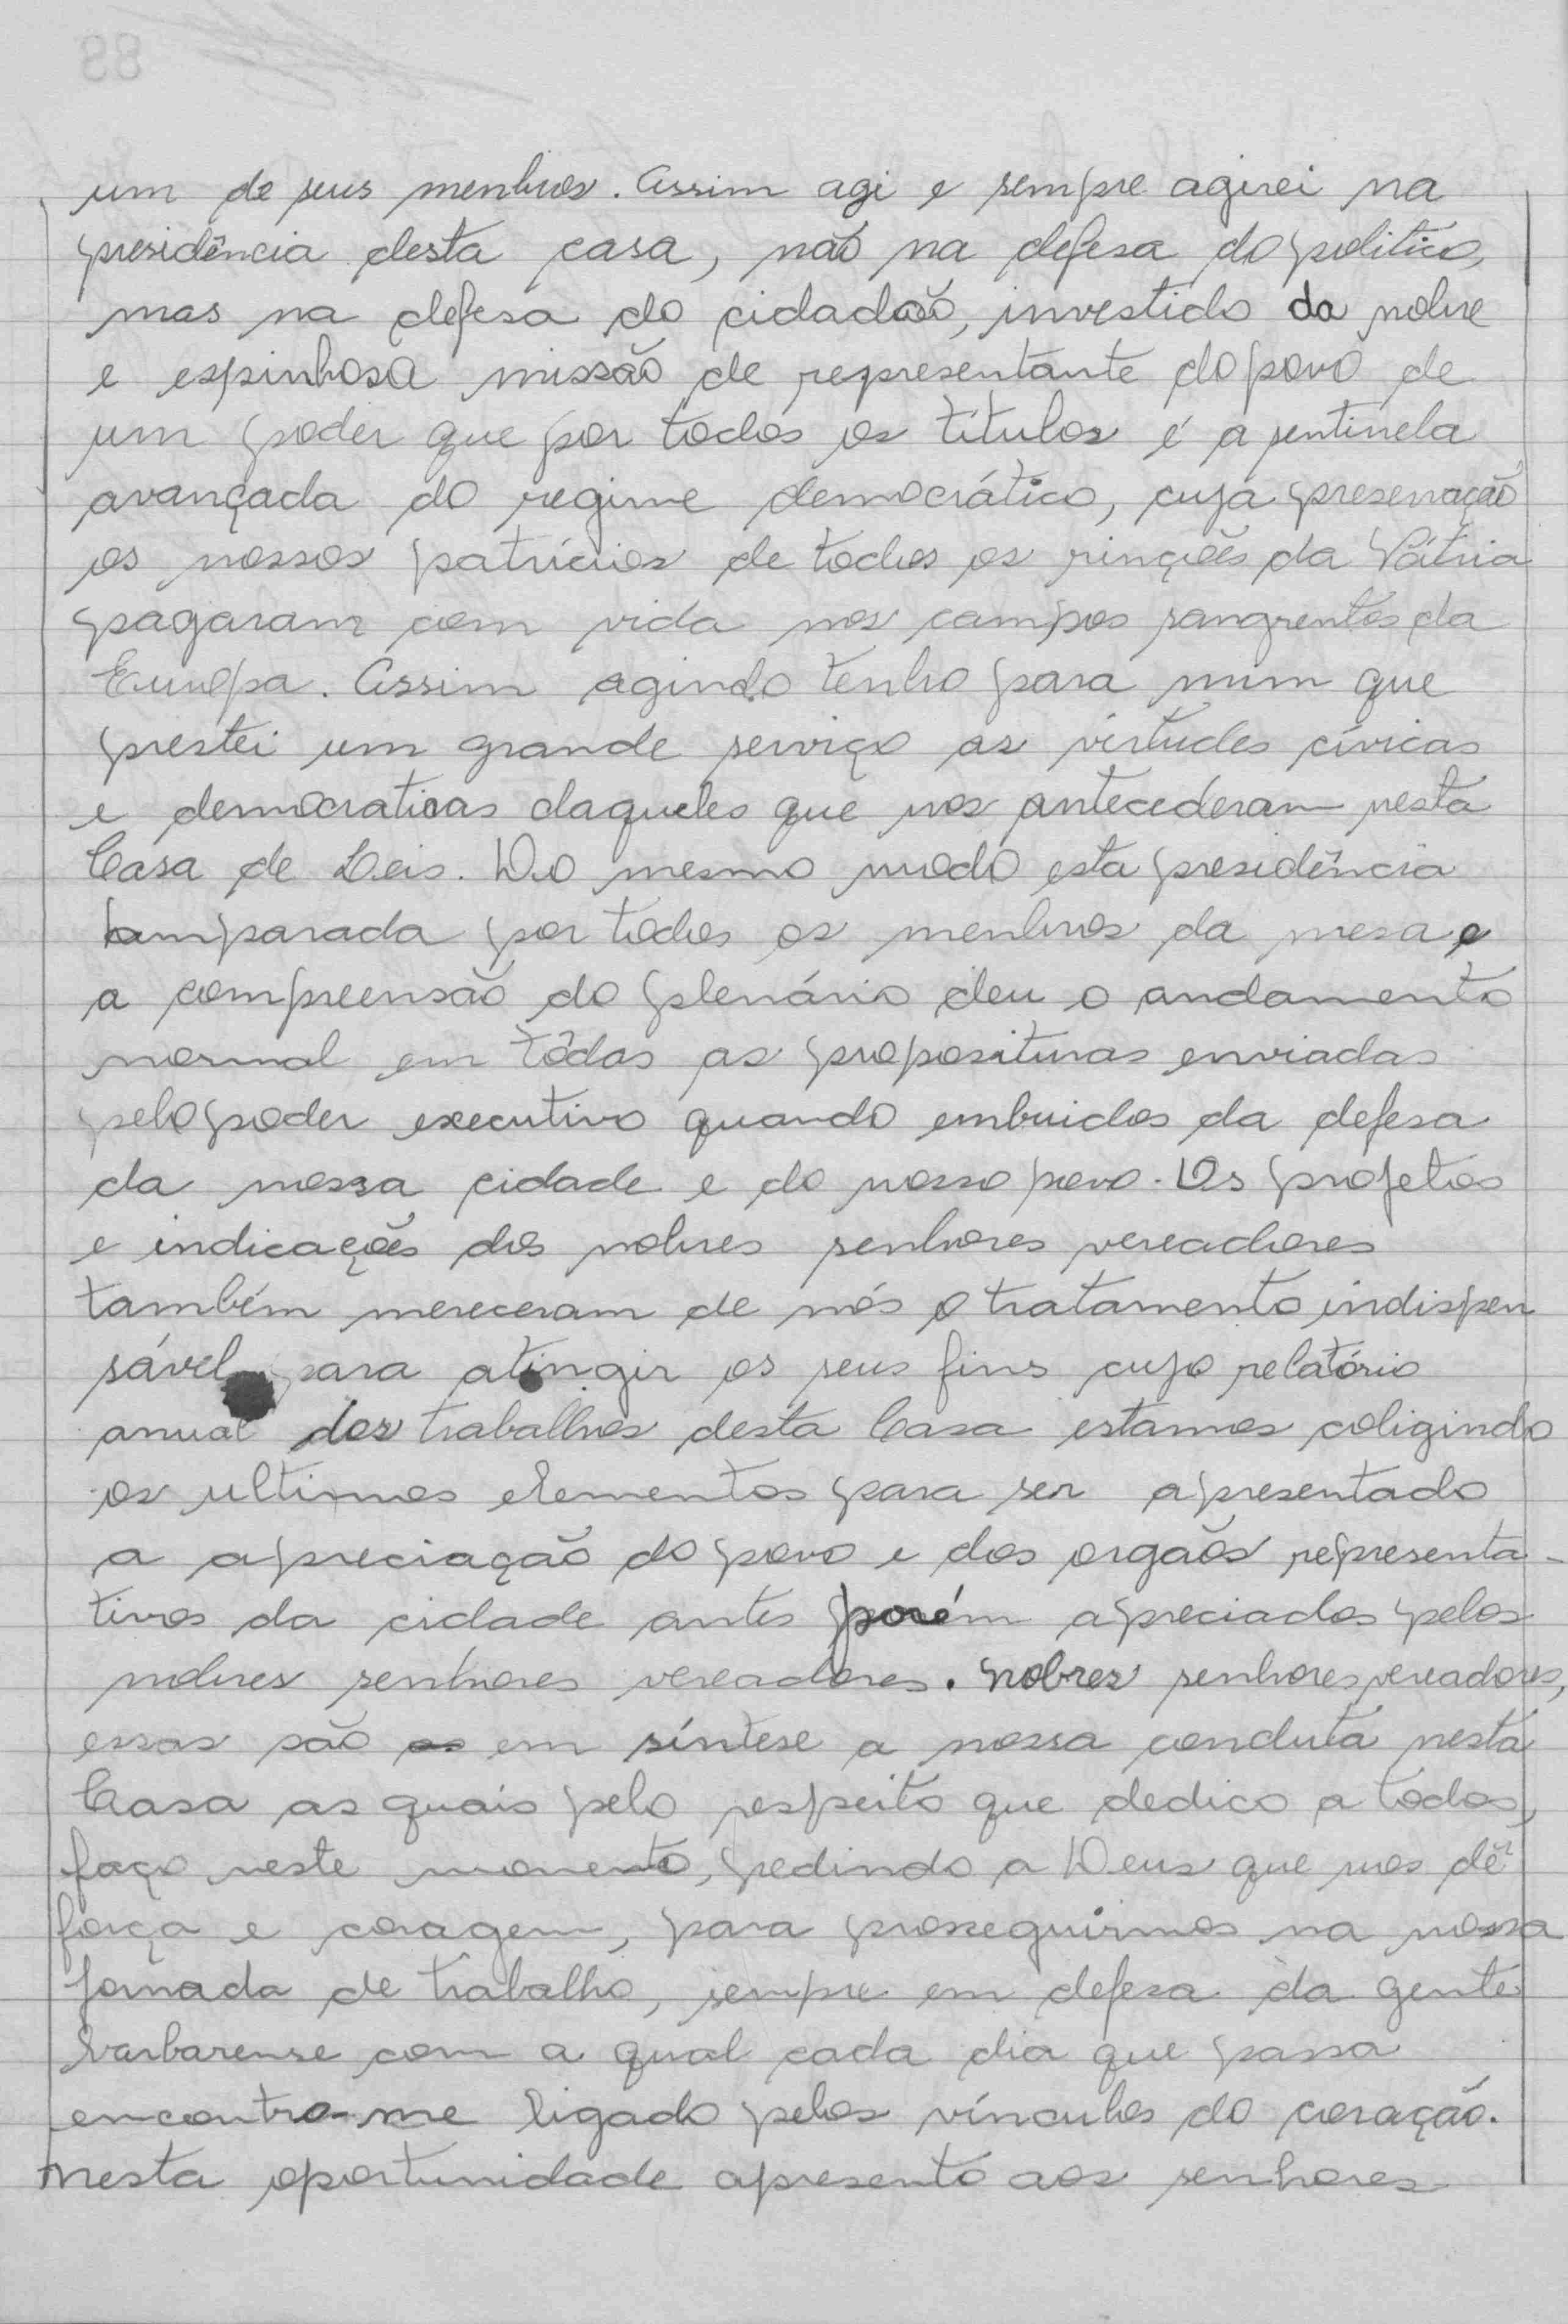 um de seus menbros. Assim agi e sempre agirei na
presidência desta casa, não na defesa do politico,
mas na defesa do cidadão, investido da nobre
e espinhosa missão de representante do povo de
um poder que por todos os títulos é a sentinela
avançada do regime democrático, cuja preservação
os nossos patrícios de todos os rinções da Pátria
pagaram com vida nos campos sangrentos da
Europa. Assim agindo tenho para mim que
prestei um grande serviço as virtudes cívicas
e democraticas daqueles que nos antecederam nesta
Casa de Leis. Do mesmo modo esta presidência
amparada por todos os menbros da mesa e
a compreensão do plenário deu o andamento
normal em tôdas as proposituras enviadas
pelo poder executivo quando embuidos da defesa
da nossa cidade e do nosso povo. Os projetos
e indicações dos nobres senhores vereadores
também mereceram de nós o tratamento indispen
sável para atingir os seus fins cujo relatório
anual dos trabalhos desta Casa estamos coligindo
os ultimos elementos para ser apresentado
a apreciação do povo e dos orgãos representa-
tivos da cidade antes porém apreciados pelos
nobres senhores vereadores. Nobres senhores vereadores,
essas são em síntese a nossa conduta nesta
Casa as quais pelo respeito que dedico a todos,
faço neste momento, pedindo a Deus que nos dê
força e coragem, para prosseguirmos na nossa
jornada de trabalho, sempre em defesa da gente
barbarense com a qual cada dia que passa
encontro-me ligado pelos vínculos do coração.
Nesta oportunidade apresento aos senhores